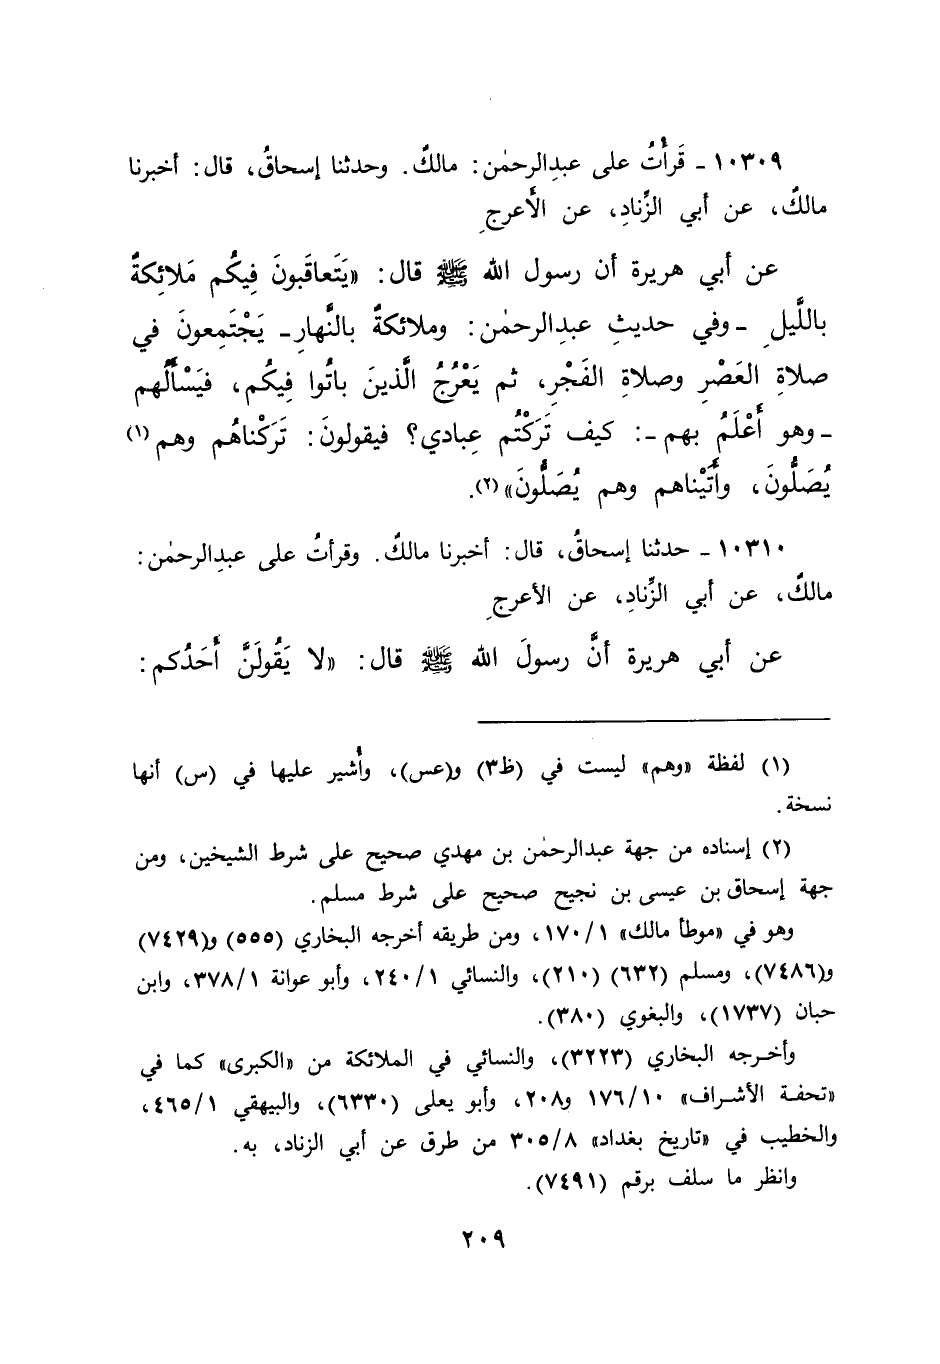 ١٠٣٠٩ ـ قَرأْتُ على عبدِالرحمٰن: مالكٌ. وحدثنا إسحاقُ، قال: أخبرنا
مالكٌ، عن أبي الزِّنادِ، عن الأَعرجِ
عن أبي هريرة أن رسول الله ﷺ قال: «يَتَعاقَبونَ فِيكُم مَلائِكةٌ
باللَّيلِ ـ وفي حديثِ عبدِالرحمٰن: وملائكةٌ بالنَّهارِ ـ يَجْتَمِعونَ في
صلاةِ العَصْرِ وصلاةِ الفَجْرِ، ثم يَعْرُجُ الَّذينَ باتُوا فِيكُم، فيَسْأَلُهم
ـ وهو أَعْلَمُ بهم ـ: كيف تَرَكْتُم عِبادي؟ فيقولونَ: تَرَكْناهُم وهم(١)
يُصَلُّونَ، وأَتَيْناهم وهم يُصَلُّونَ»(٢).
١٠٣١٠ ـ حدثنا إسحاقُ، قال: أخبرنا مالكٌ. وقرأتُ على عبدِالرحمٰن:
مالكٌ، عن أبي الزِّنادِ، عن الأعرجِ
عن أبي هريرة أنَّ رسولَ الله ﷺ قال: «لا يَقُولَنَّ أَحَدُكم:
(١) لفظة «وهم» ليست في (ظ٣) و(عس)، وأُشير عليها في (س) أنها
نسخة.
(٢) إسناده من جهة عبدالرحمٰن بن مهدي صحيح على شرط الشيخين، ومن
جهة إسحاق بن عيسى بن نجيح صحيح على شرط مسلم.
وهو في «موطأ مالك» ١/١٧٠، ومن طريقه أخرجه البخاري (٥٥٥) و(٧٤٢٩)
و(٧٤٨٦)، ومسلم (٦٣٢) (٢١٠)، والنسائي ١/٢٤٠، وأبو عوانة ١/٣٧٨، وابن
حبان (١٧٣٧)، والبغوي (٣٨٠).
وأخرجه البخاري (٣٢٢٣)، والنسائي في الملائكة من «الكبرى» كما في
«تحفة الأشراف» ١٠/١٧٦ و٢٠٨، وأبو يعلى (٦٣٣٠)، والبيهقي ١/٤٦٥،
والخطيب في «تاريخ بغداد» ٨/٣٠٥ من طرق عن أبي الزناد، به.
وانظر ما سلف برقم (٧٤٩١).
٢٠٩